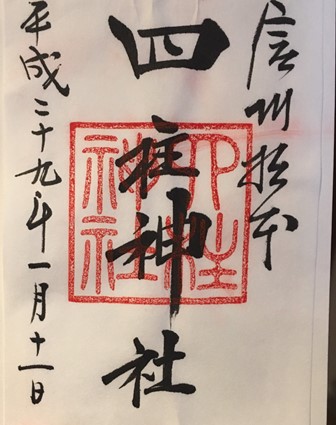 信州松本
四柱神社
四柱神社
平成二十九年一月十一日